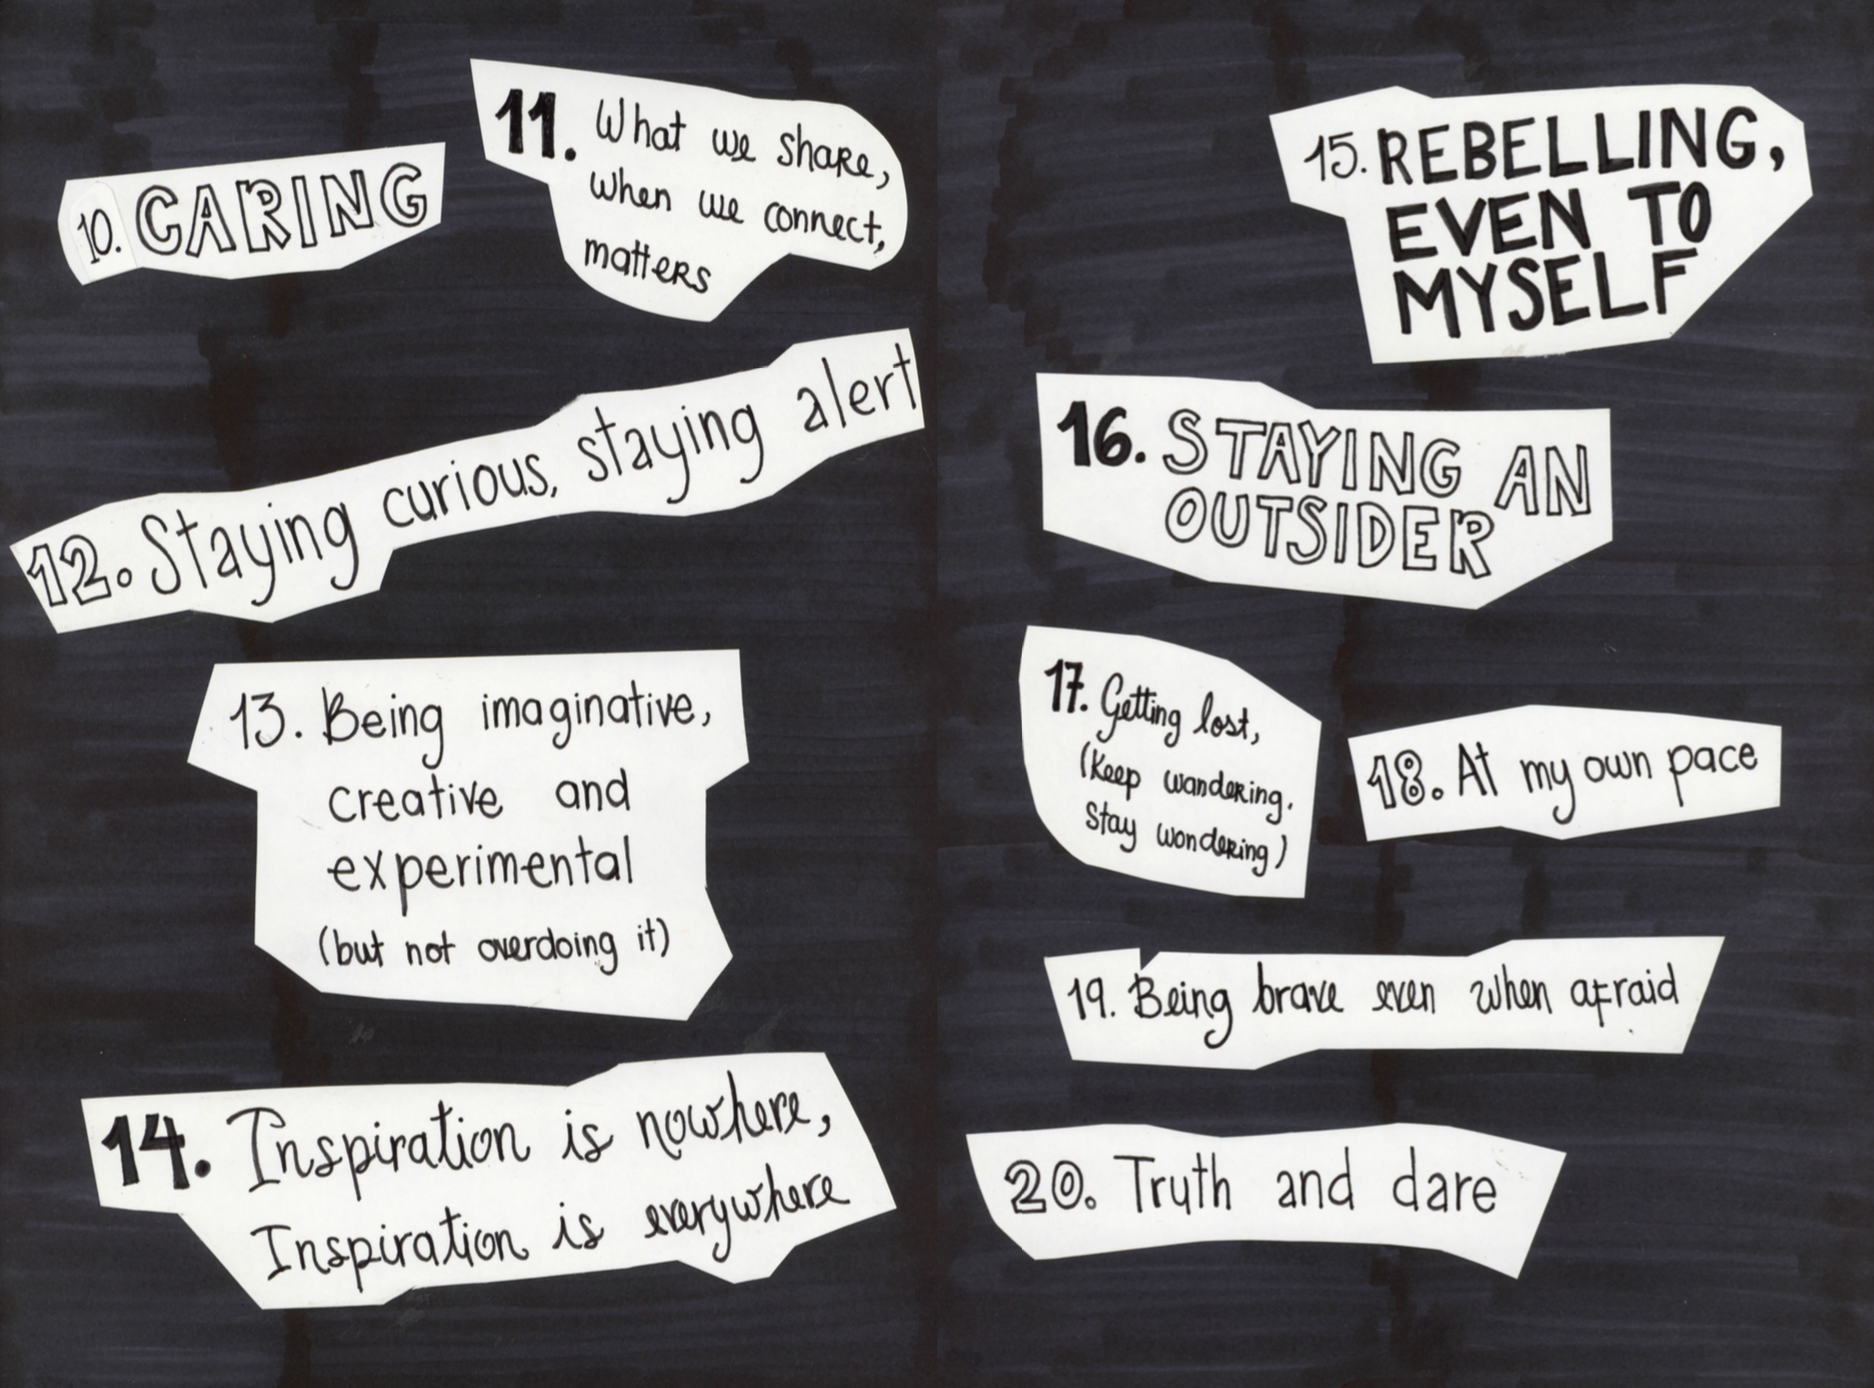 10. CARING
11. What we share,
when we connect,
matters
12. Staying curious, staying alert
13. Being imaginative,
creative and
experimental
(but not overdoing it)
14. Inspiration is nowhere,
Inspiration is everywhere
15. REBELLING,
EVEN TO
MYSELF
16. STAYING AN
OUTSIDER
17. Getting lost,
(Keep wandering.
Stay wondering)
18. At my own pace
19. Being brave even when afraid
20. Truth and dare